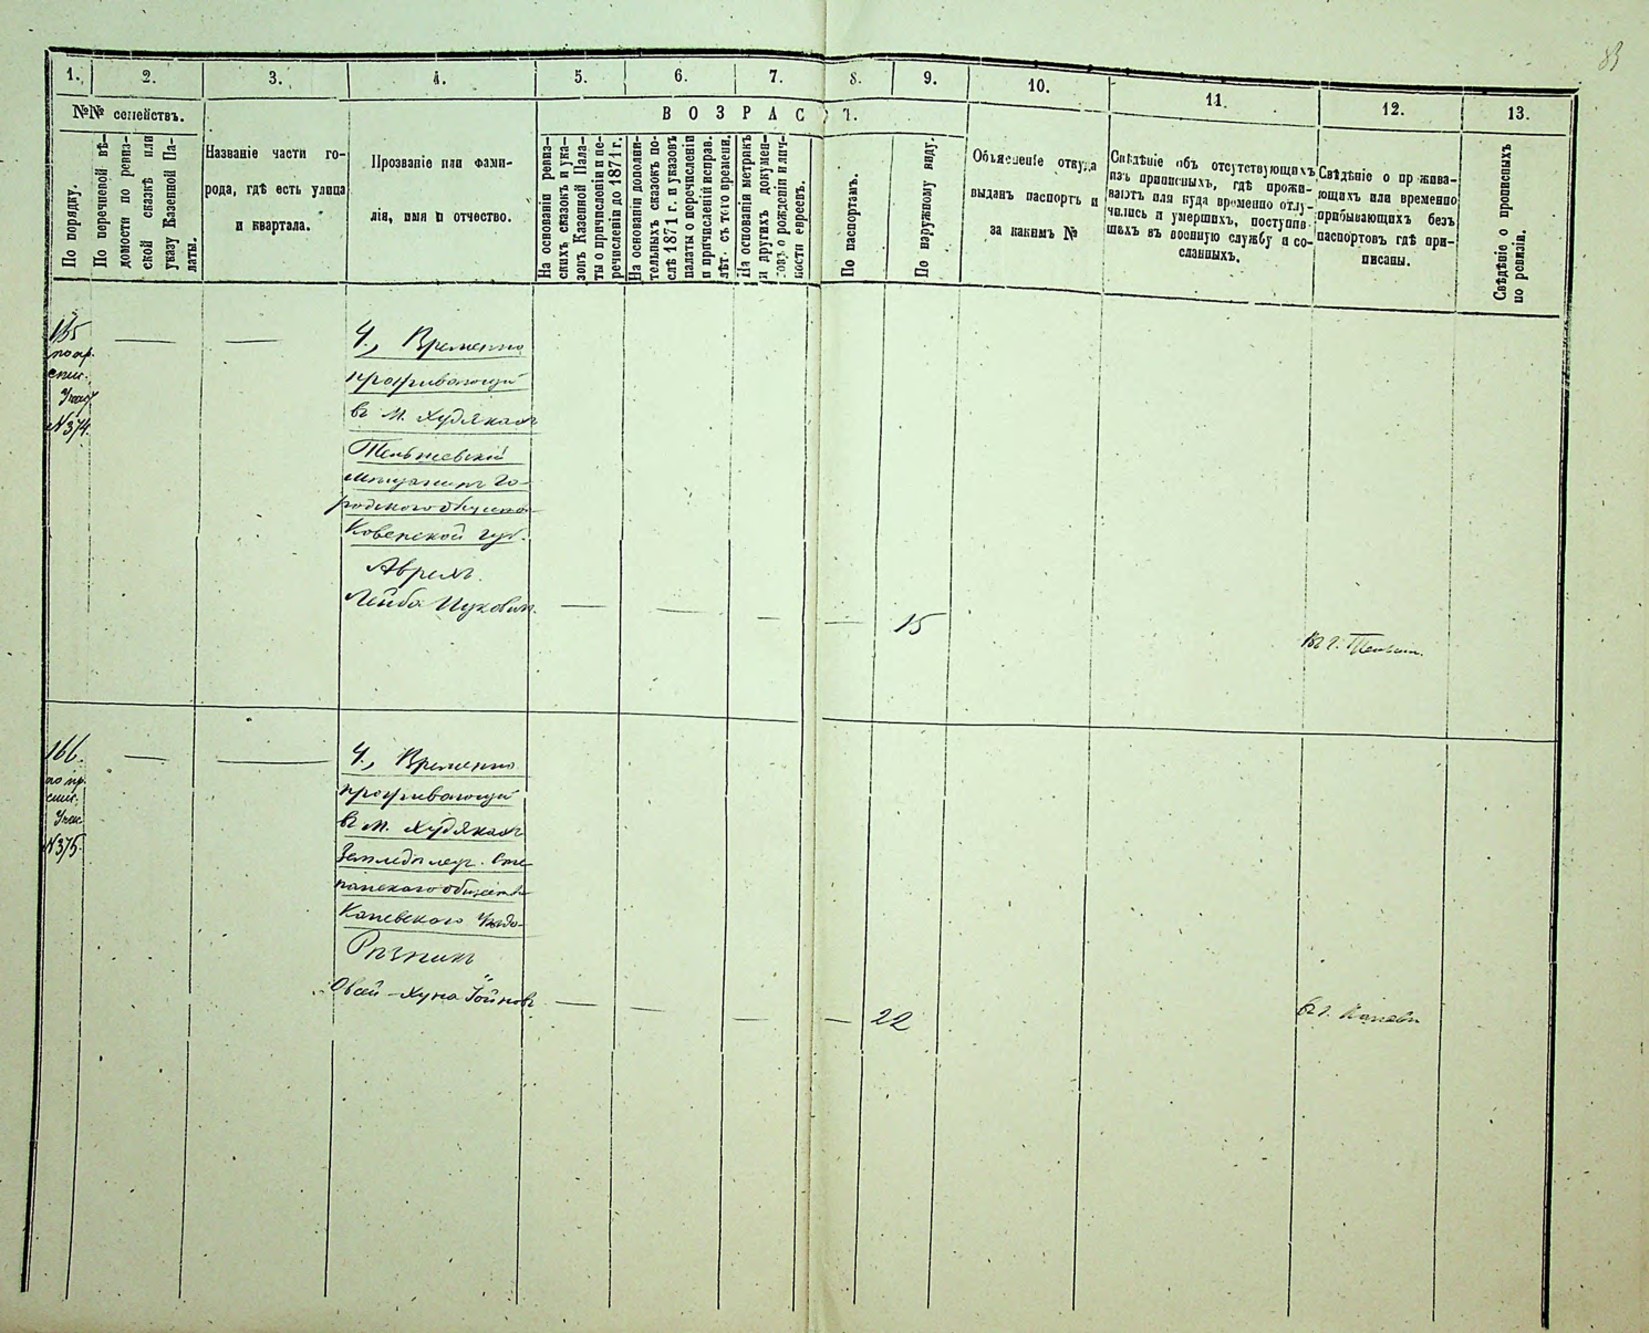 83
1.
2.
3.
4.
5.
6.
7.
8.
9.
10.
11.
12.
13.
№№ семействъ.
ВОЗРАСТ.
По порядку.
По перечневой вѣ-
домости по ревиз-
ской сказкѣ или
указу Казенной Па-
латы.
Названіе части го-
рода, гдѣ есть улица
и квартала.
Прозваніе или фами-
лія, имя и отчество.
На основаніи ревиз-
скихъ сказокъ и ука-
зовъ Казенной Пала-
ты о причисленіи и пе-
речисленіи до 1871 г.
На основаніи дополни-
тельныхъ сказокъ по-
слѣ 1871 г. и указовъ
палаты о перечисленіи
и причисленіи исправ.
лѣт. съ того времени.
На основаніи метрикъ
и другихъ докумен-
товъ о рожденіи и лич-
ности евреевъ.
По паспортамъ.
По наружному виду.
Объясненіе откуда
выданъ паспортъ и
за какимъ №
Свѣдѣніе объ отсутствующихъ
изъ приписныхъ, гдѣ прожи-
ваютъ или куда временно отлу-
чились и умершихъ, поступив-
шихъ въ военную службу и со-
сланныхъ.
Свѣдѣніе о прожива-
ющихъ или временно
прибывающихъ безъ
паспортовъ гдѣ при-
писаны.
Свѣдѣніе о прописныхъ
по ревизіи.
N 374.
Ч., Временно
проживающій
въ м. Худякахъ
Тельшевскій
мѣщанинъ Го-
родского общества
Ковенской губ.
Лейба Ицковъ
15
Въ г.
166.
N 375.
Ч., Временно
проживающій
въ м. Худякахъ
Земледѣлецъ. Сте
панскаго общества
Каневскаго уѣзда
Рѣзникъ
Овсей-Хуна Іойновъ
22
Въ г. Каневѣ